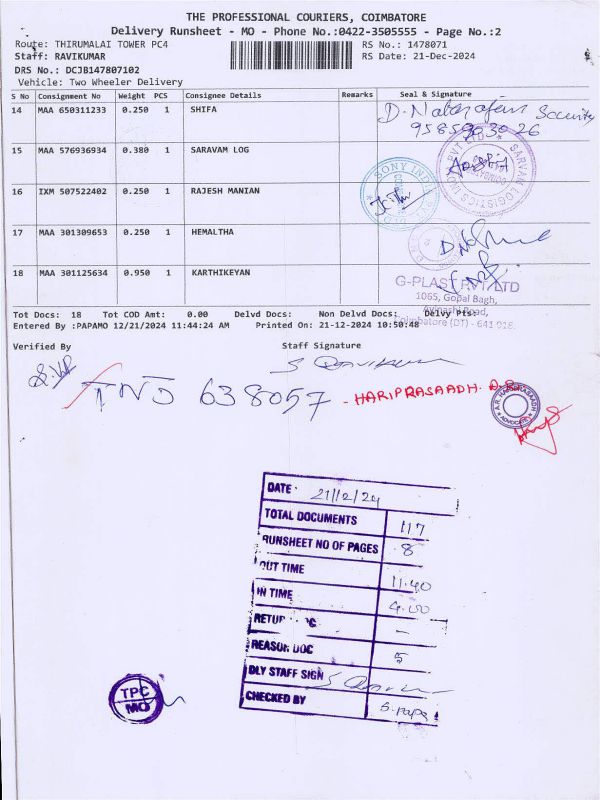 THE PROFESSIONAL COURIERS, COIMBATORE
Delivery Runsheet - MO - Phone No.:0422-3505555 - Page No.:2
Route: THIRUMALAI TOWER PC4 RS No.: 1478071
Staff: RAVIKUMAR RS Date: 21-Dec-2024
DRS No.: DCJB147807102
Vehicle: Two Wheeler Delivery
S No Consignment No Weight PCS Consignee Details Remarks Seal & Signature
14 MAA 650311233 0.250 1 SHIFA
Security
15 MAA 576936934 0.380 1 SARAVAM LOG
SARVAM LOGISTICS
16 IXM 507522402 0.250 1 RAJESH MANIAN
SONY INDIA
17 MAA 301309653 0.250 1 HEMALTHA
18 MAA 301125634 0.950 1 KARTHIKEYAN
G-PLAST PVT LTD
1065, Gopal Bagh,
Avinashi Road,
Coimbatore (DT) - 641 018.
Tot Docs: 18 Tot COD Amt: 0.00 Delvd Docs: Non Delvd Docs: Delvy Pts:
Entered By :PAPAMO 12/21/2024 11:44:24 AM Printed On: 21-12-2024 10:50:48
Verified By Staff Signature
S Ravikumar
TND 638057 - HARIPRASAADH
A.R. HARIPRASAADH
ADVOCATE
DATE 21/12/24
TOTAL DOCUMENTS 117
RUNSHEET NO OF PAGES 8
OUT TIME 11.40
IN TIME 4.00
RETURN DOC -
REASON DOC 5
DLY STAFF SIGN
CHECKED BY S. Papa
TPC
MO